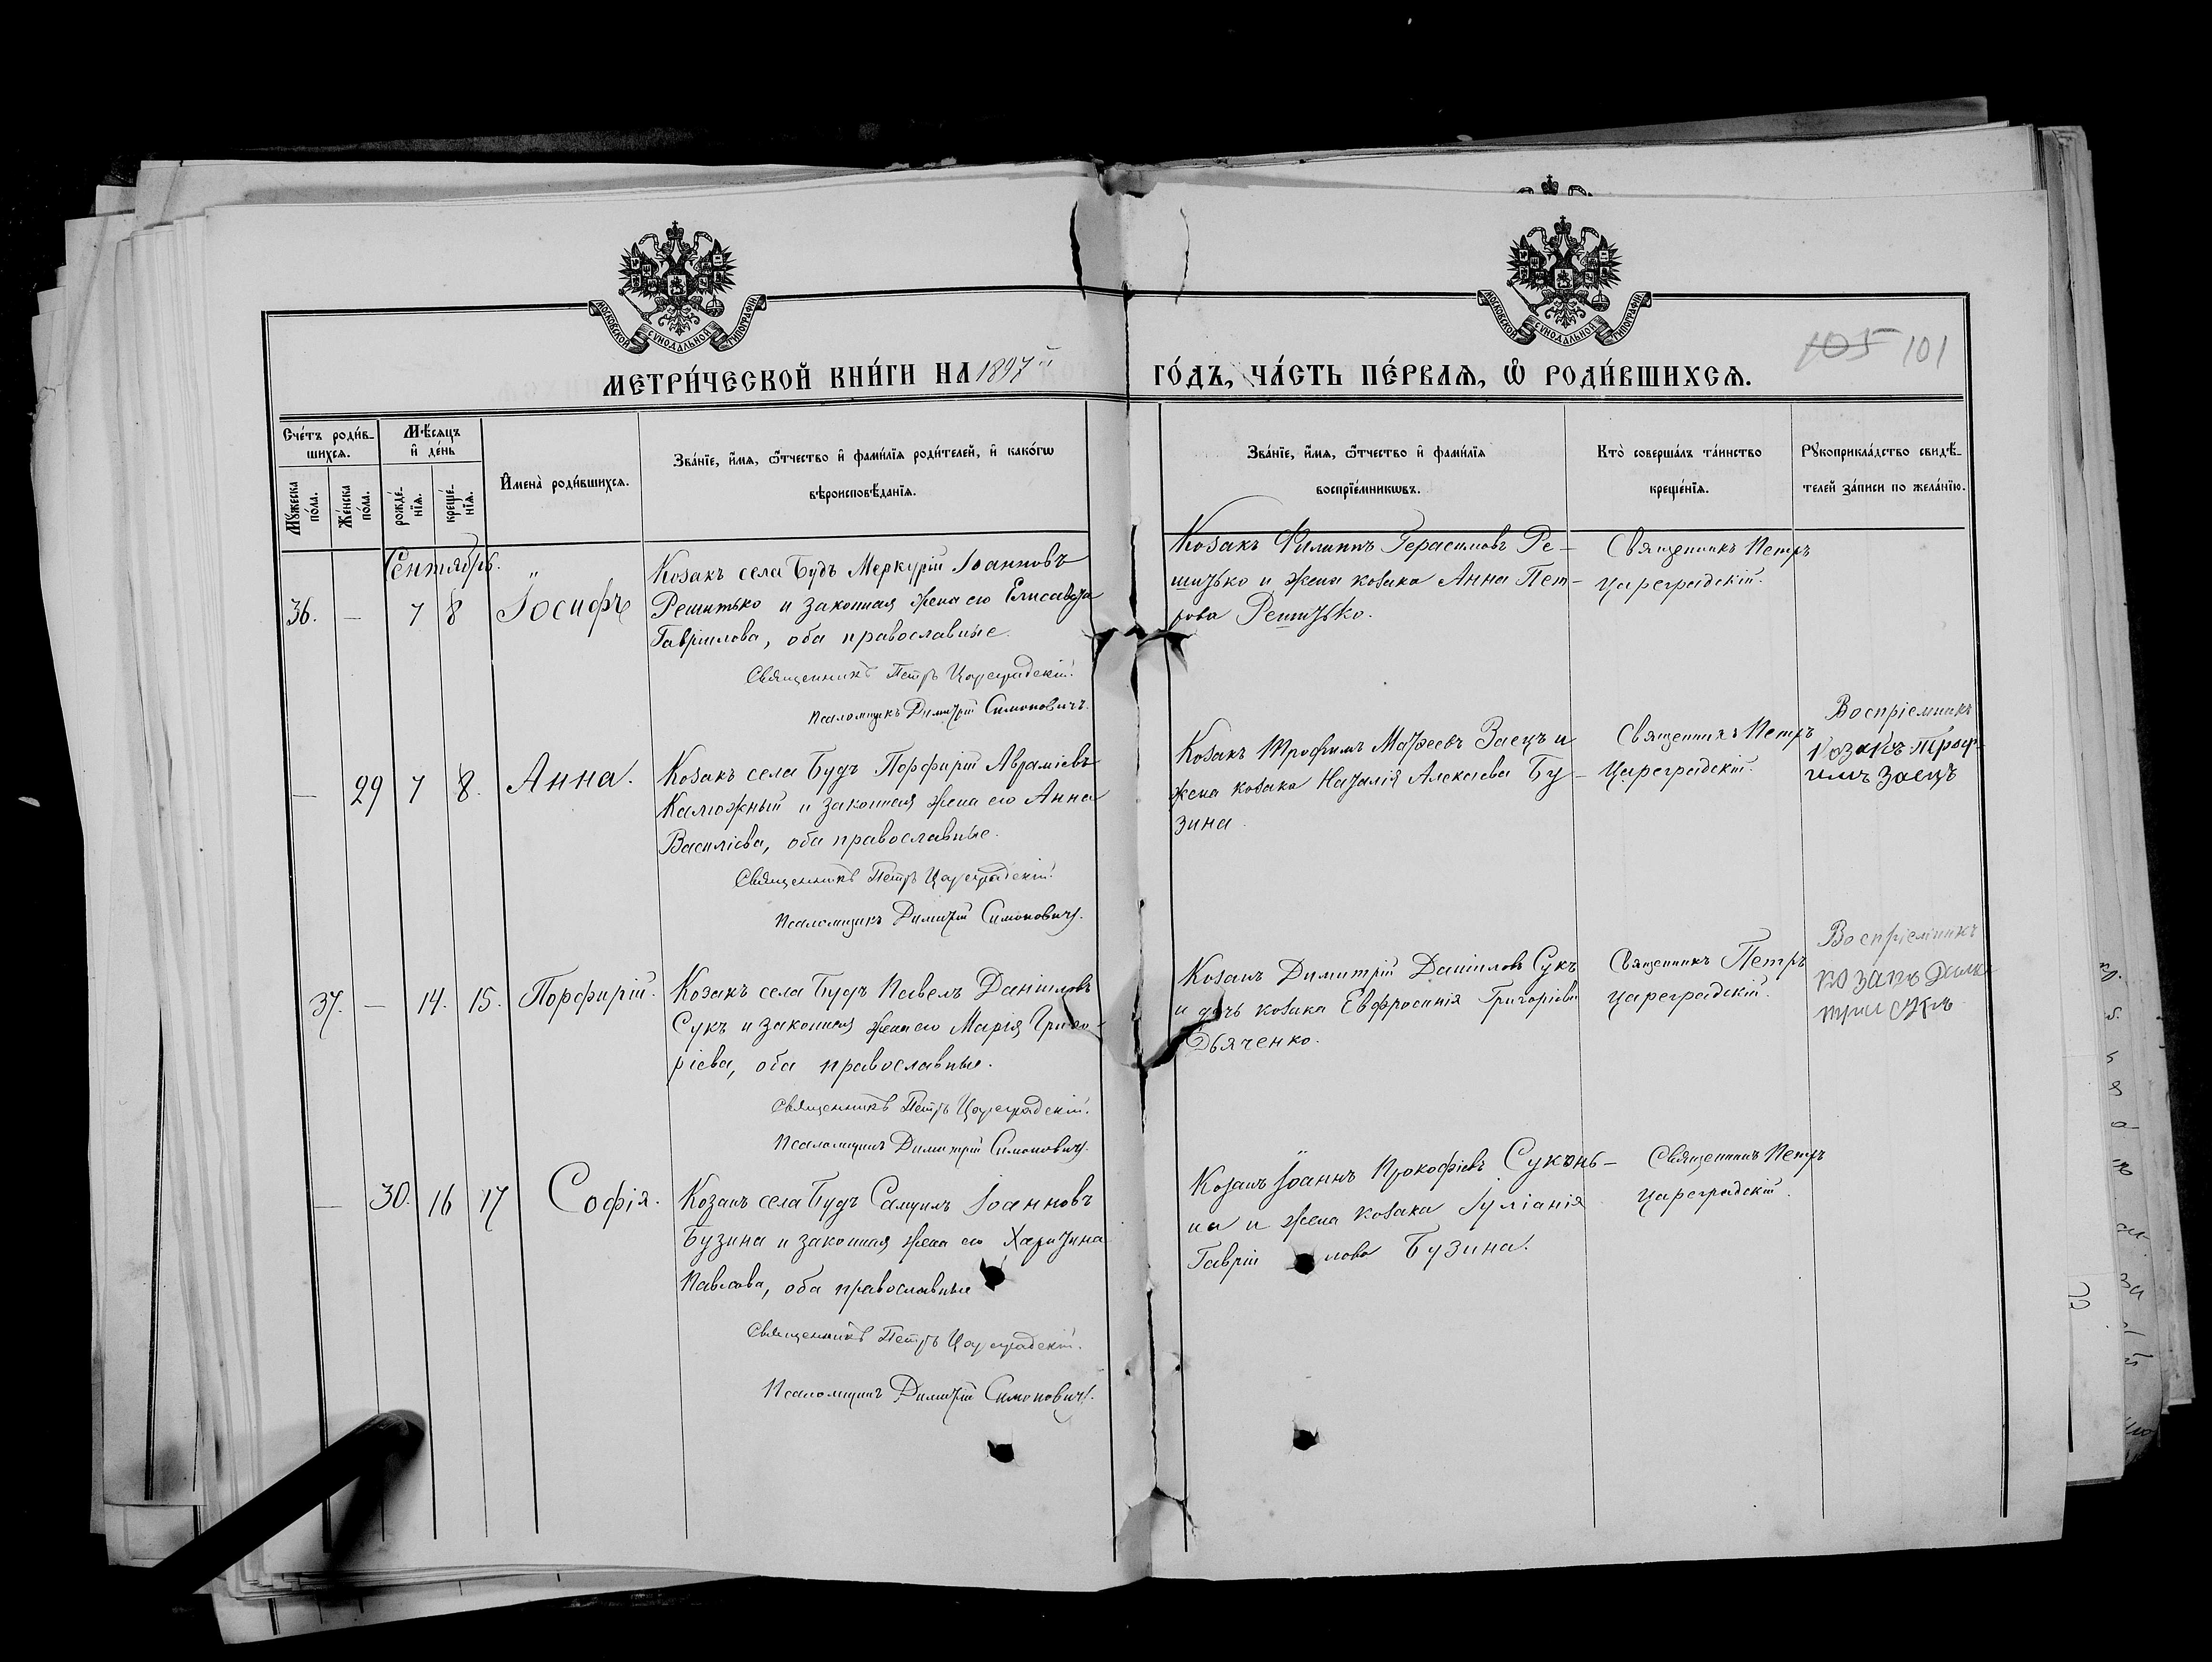 МОСКОВСКОЙ СѴНОДАЛЬНОЙ ТИПОГРАФІИ
МОСКОВСКОЙ СѴНОДАЛЬНОЙ ТИПОГРАФІИ
105 101
МЕТРИ́ЧЕСКОЙ КНИ́ГИ НА 1897й ГО́ДЪ, ЧА́СТЬ ПЕ́РВАѦ, Ѡ҆ РОДИ́ВШИХСѦ.
Сче́тъ роди́в-
шихсѧ.
Мꙋ́жеска по́ла.
Же́нска по́ла.
Мѣ́сѧцъ
и҆ де́нь
рожде́-
нїѧ.
креще́-
нїѧ.
И҆мена̀ роди́вшихсѧ.
Зва́нїе, и҆́мѧ, ѻ҆́тчество и҆ фами́лїѧ роди́телей, и҆ како́гѡ
вѣроисповѣ́данїѧ.
Зва́нїе, и҆́мѧ, ѻ҆́тчество и҆ фами́лїѧ
воспрїе́мникѡвъ.
Кто̀ соверша́лъ та́инство
креще́нїѧ.
Рꙋкоприкла́дство свидѣ́-
телей за́писи по жела́нїю.
Сентябрь.
36. — 7 8 Іосифъ
Козакъ села Будъ Меркурій Іоанновъ
Решитько и законная жена его Елисавета
Гавріилова, оба православные.
Священникъ Петръ Цареградскій.
Псаломщикъ Димитрій Симоновичъ.
Козакъ Филиппъ Герасимовъ Ре-
шитько и жена козака Анна Пет-
рова Решитько.
Священникъ Петръ
Цареградскій.
— 29 7 8. Анна.
Козакъ села Будъ Порфирій Авраміевъ
Калюжный и законная жена его Анна
Василіева, оба православные.
Священникъ Петръ Цареградскій.
Псаломщикъ Димитрій Симоновичъ.
Козакъ Трофимъ Матѳеевъ Заецъ и
жена козака Наталія Алексіева Бу-
зина.
Священникъ Петръ
Цареградскій.
Воспріемникъ
козакъ Троф-
имъ Заецъ
37. — 14. 15. Порфирій.
Козакъ села Будъ Павелъ Даніиловъ
Сукъ и законная жена его Марія Григо-
ріева, оба православные.
Священникъ Петръ Цареградскій.
Псаломщикъ Димитрій Симоновичъ.
Козакъ Димитрій Даніиловъ Сукъ
и дочь козака Евфросинія Григоріева
Дьяченко.
Священникъ Петръ
Цареградскій.
Воспріемникъ
козакъ Дими
трии Сукъ
— 30. 16 17 Софія.
Козакъ села Будъ Самуилъ Іоанновъ
Бузина и законная жена его Харитина
Павлова, оба православные
Священникъ Петръ Цареградскій.
Псаломщикъ Димитрій Симоновичъ.
Козакъ Іоаннъ Прокофіевъ
и жена козака Іуліанія
Гавріилова Бузина.
Священникъ Петръ
Цареградскій.